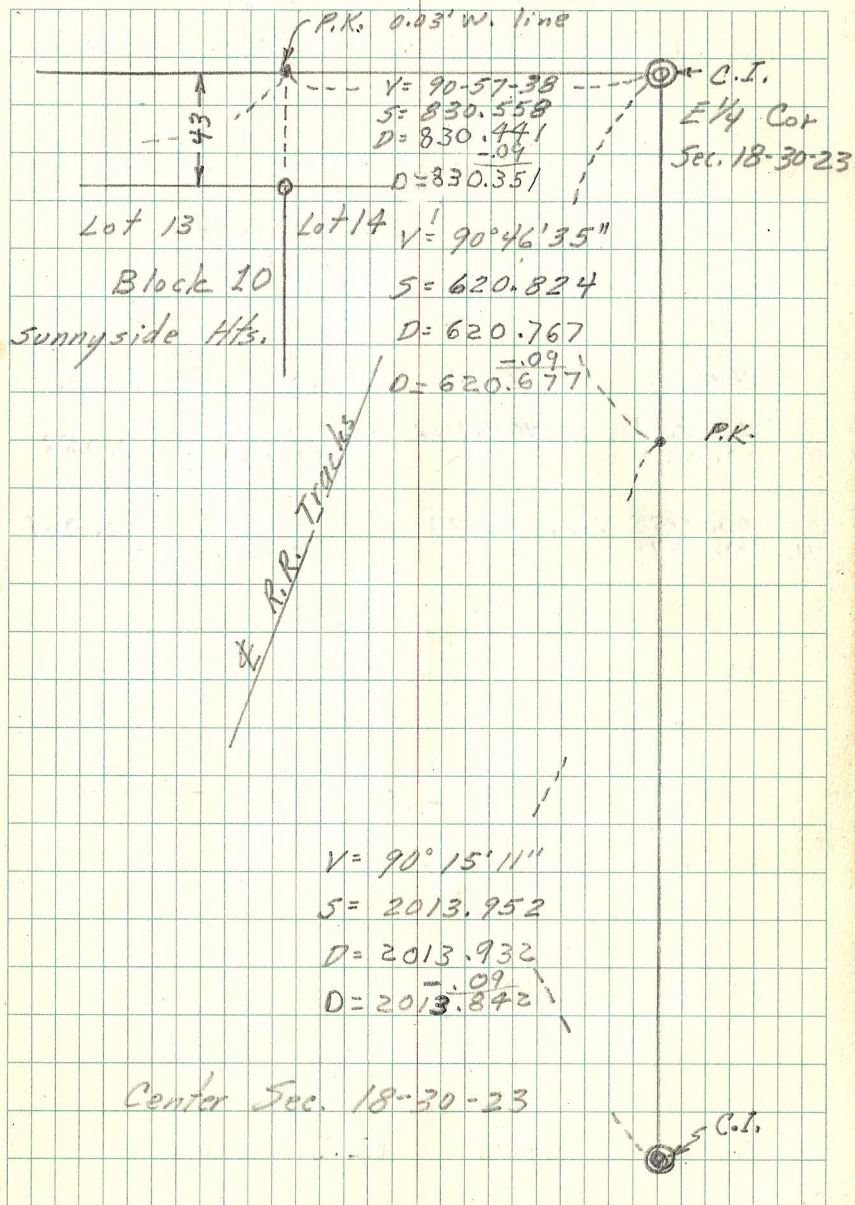 P.K. 0.03' W. line
C.I.
E 1/4 Cor
Sec. 18-30-23
43
V= 90-57-38
S= 830.558
D= 830.441
-.09
D= 830.351
Lot 13
Lot 14
Block 10
Sunnyside Hts.
V= 90°46'35"
S= 620.824
D= 620.767
-.09
D= 620.677
P.K.
℄ R.R. Tracks
V= 90° 15' 11"
S= 2013.952
D= 2013.932
-.09
D= 2013.842
Center Sec. 18-30-23
C.I.